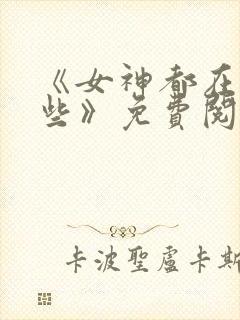 《女神都在
些》免費閱
卡波聖盧卡斯